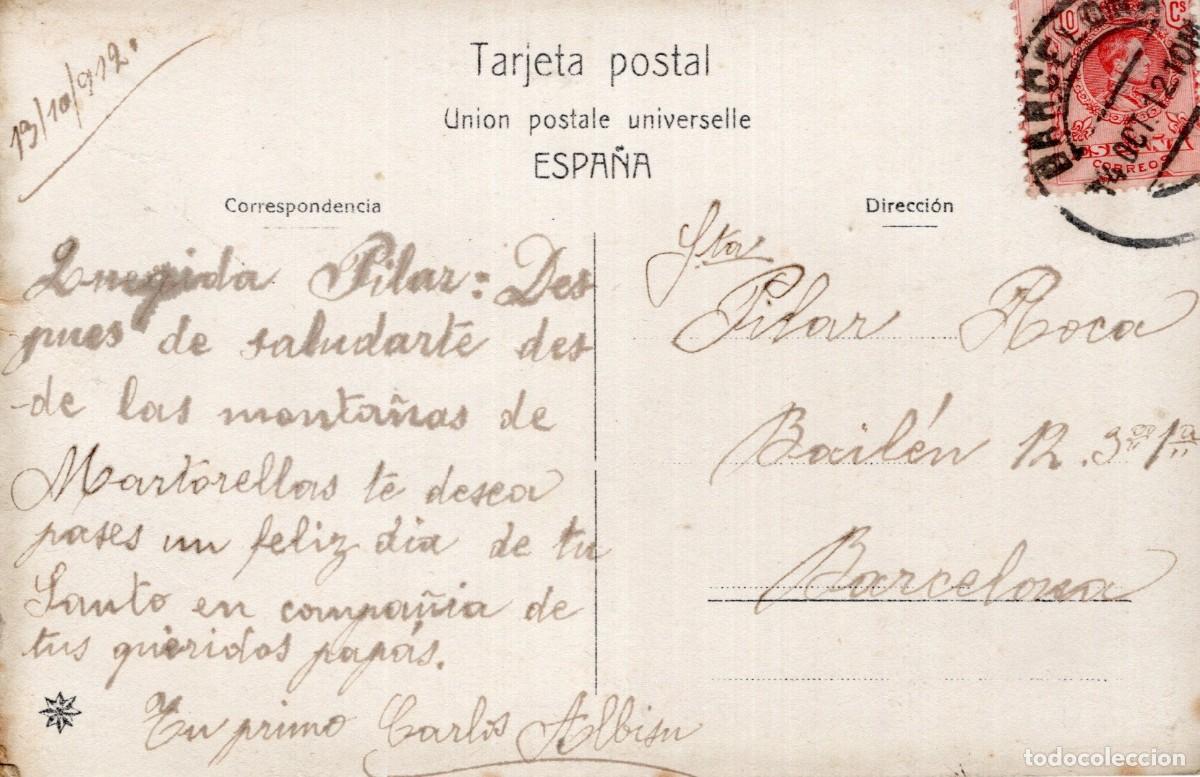 13/10/912.
Tarjeta postal
Union postale universelle
ESPAÑA
10 Cs
ESPAÑA
CORREOS
BARCELONA
14 OCT 12 10M
Correspondencia
Pilar: Des
pues de saludarte des
-de las montañas de
Martorellas te desea
pases un feliz dia de tu
Santo en compañia de
tus queridos papás.
Tu primo Carlos Albisu
Dirección
Sta
Pilar Roca
Bailén 12. 3º 1ª
Barcelona
todocoleccion